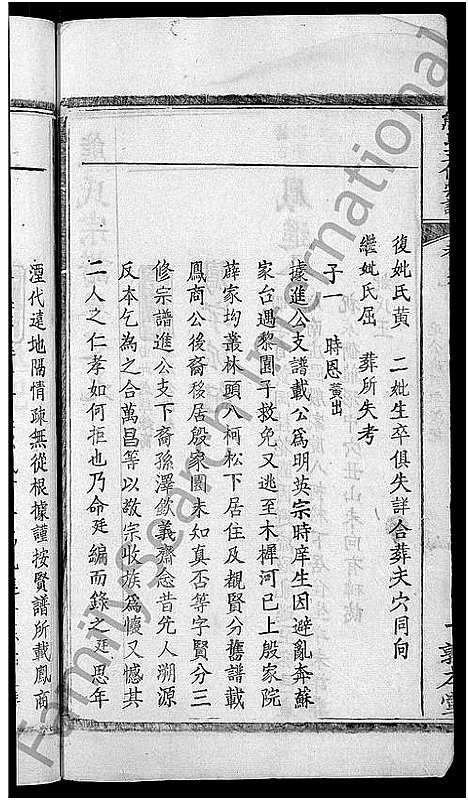 復妣氏黄 二妣生卒俱失詳合葬夫穴同向
繼妣氏屈 葬所失考
子一 時恩黄出
據進公支譜載公爲明英宗時庠生因避亂奔蘇
家台遇黎園子救免又逃至木樨河已上殷家院
薜家坳叢林頭八柯松下居住及觀賢分舊譜載
鳳商公後裔移居殷家園未知真否等字賢分三
修宗譜進公支下裔孫澤歛義齋念昔先人溯源
反本乞為之合萬昌等以敬宗收族爲懷又憾其
二人之仁孝如何拒也乃命廷編而錄之廷思年
湮代遠地隔情疎無從根據謹按賢譜所載鳳商
敦本堂
FamilySearch International